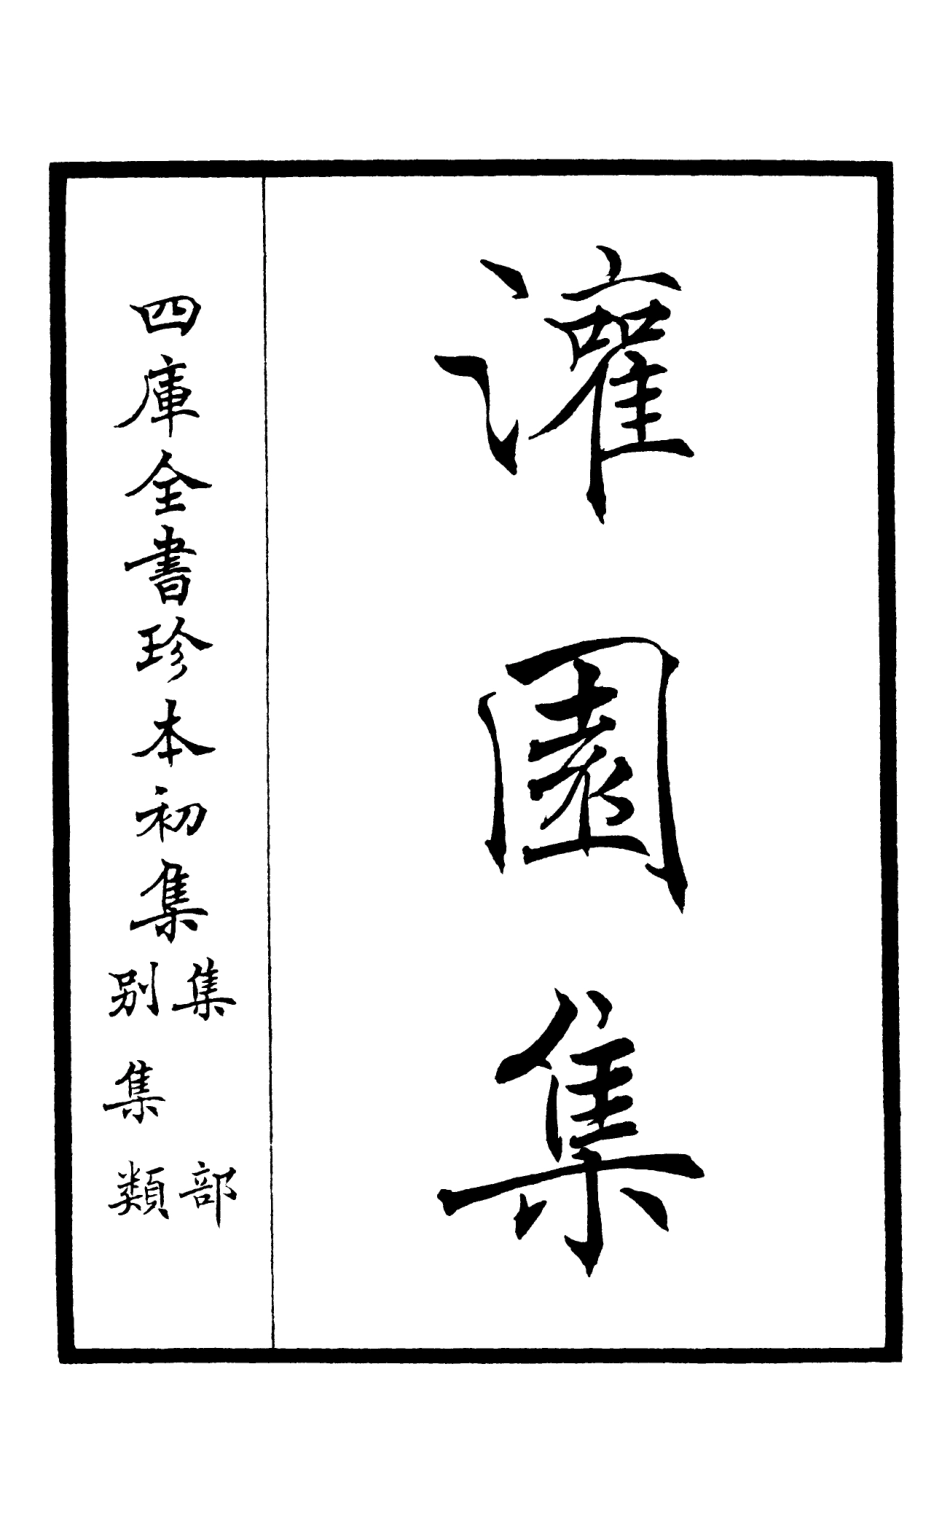 灌園集
四庫全書珍本初集
集部
別集類